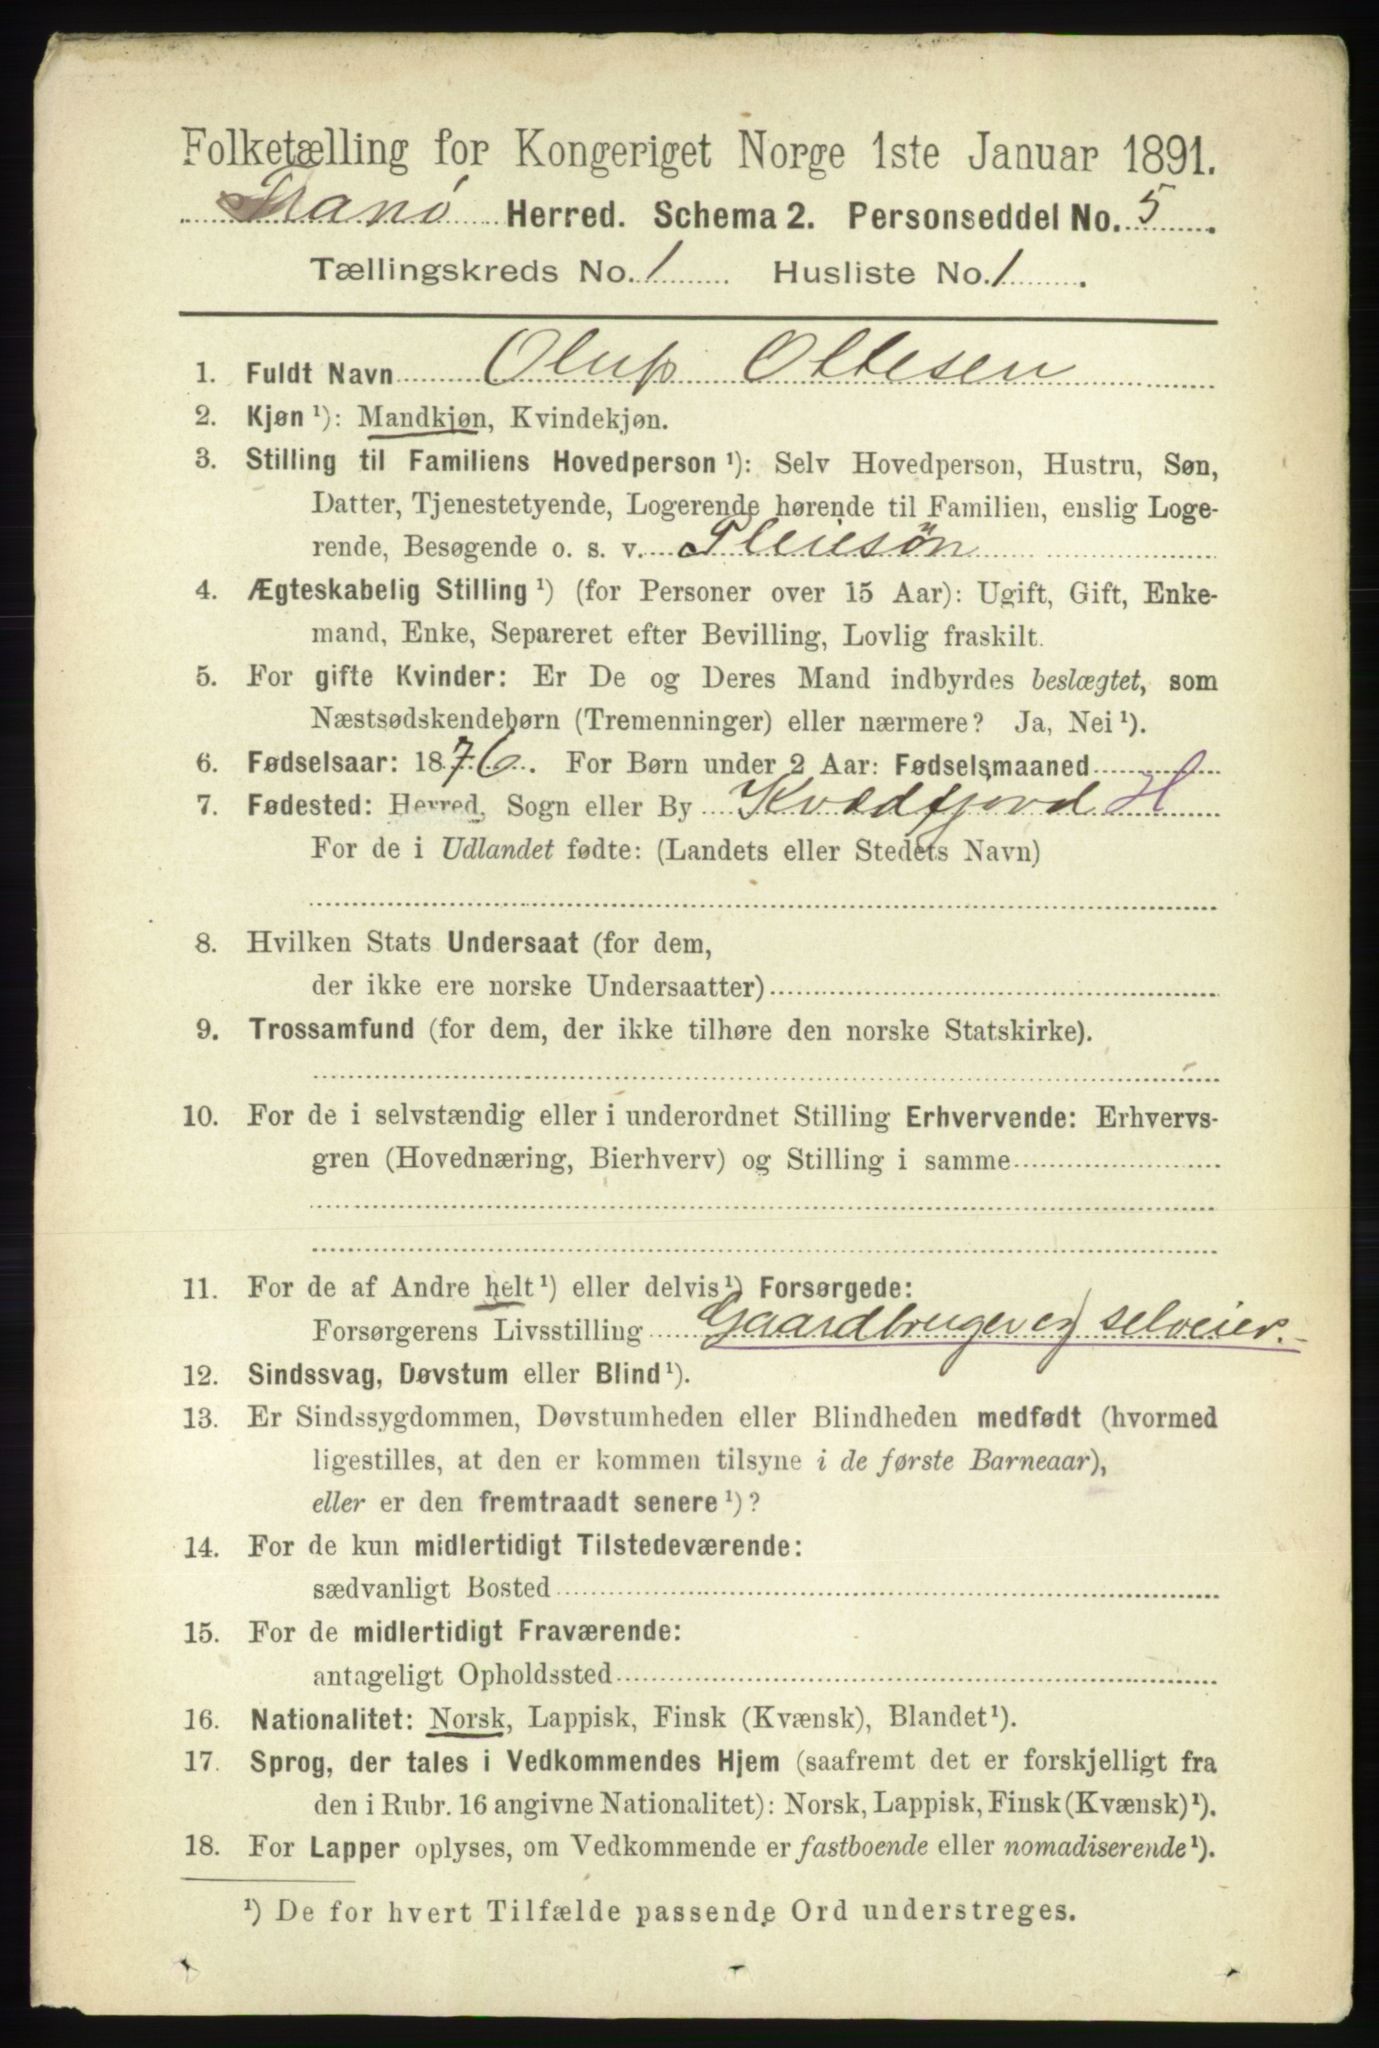 Folketælling for Kongeriget Norge 1ste Januar 1891.
Tranø Herred. Schema 2. Personseddel No. 5.
Tællingskreds No. 1 Husliste No. 1.
1. Fuldt Navn Oluf Ottesen
2. Kjøn ¹): Mandkjøn, Kvindekjøn.
3. Stilling til Familiens Hovedperson ¹): Selv Hovedperson, Hustru, Søn,
Datter, Tjenestetyende, Logerende hørende til Familien, enslig Loge-
rende, Besøgende o. s. v. Pleiesøn
4. Ægteskabelig Stilling ¹) (for Personer over 15 Aar): Ugift, Gift, Enke-
mand, Enke, Separeret efter Bevilling, Lovlig fraskilt.
5. For gifte Kvinder: Er De og Deres Mand indbyrdes beslægtet, som
Næstsødskendebørn (Tremenninger) eller nærmere? Ja, Nei ¹).
6. Fødselsaar: 1876. For Børn under 2 Aar: Fødselsmaaned
7. Fødested: Herred, Sogn eller By Kvædfjord H
For de i Udlandet fødte: (Landets eller Stedets Navn)
8. Hvilken Stats Undersaat (for dem,
der ikke ere norske Undersaatter)
9. Trossamfund (for dem, der ikke tilhøre den norske Statskirke).
10. For de i selvstændig eller i underordnet Stilling Erhvervende: Erhvervs-
gren (Hovednæring, Bierhverv) og Stilling i samme
11. For de af Andre helt ¹) eller delvis ¹) Forsørgede:
Forsørgerens Livsstilling Gaardbruger og selveier.
12. Sindssvag, Døvstum eller Blind ¹).
13. Er Sindssygdommen, Døvstumheden eller Blindheden medfødt (hvormed
ligestilles, at den er kommen tilsyne i de første Barneaar),
eller er den fremtraadt senere ¹)?
14. For de kun midlertidigt Tilstedeværende:
sædvanligt Bosted
15. For de midlertidigt Fraværende:
antageligt Opholdssted
16. Nationalitet: Norsk, Lappisk, Finsk (Kvænsk), Blandet ¹).
17. Sprog, der tales i Vedkommendes Hjem (saafremt det er forskjelligt fra
den i Rubr. 16 angivne Nationalitet): Norsk, Lappisk, Finsk (Kvænsk) ¹).
18. For Lapper oplyses, om Vedkommende er fastboende eller nomadiserende ¹).
¹) De for hvert Tilfælde passende Ord understreges.